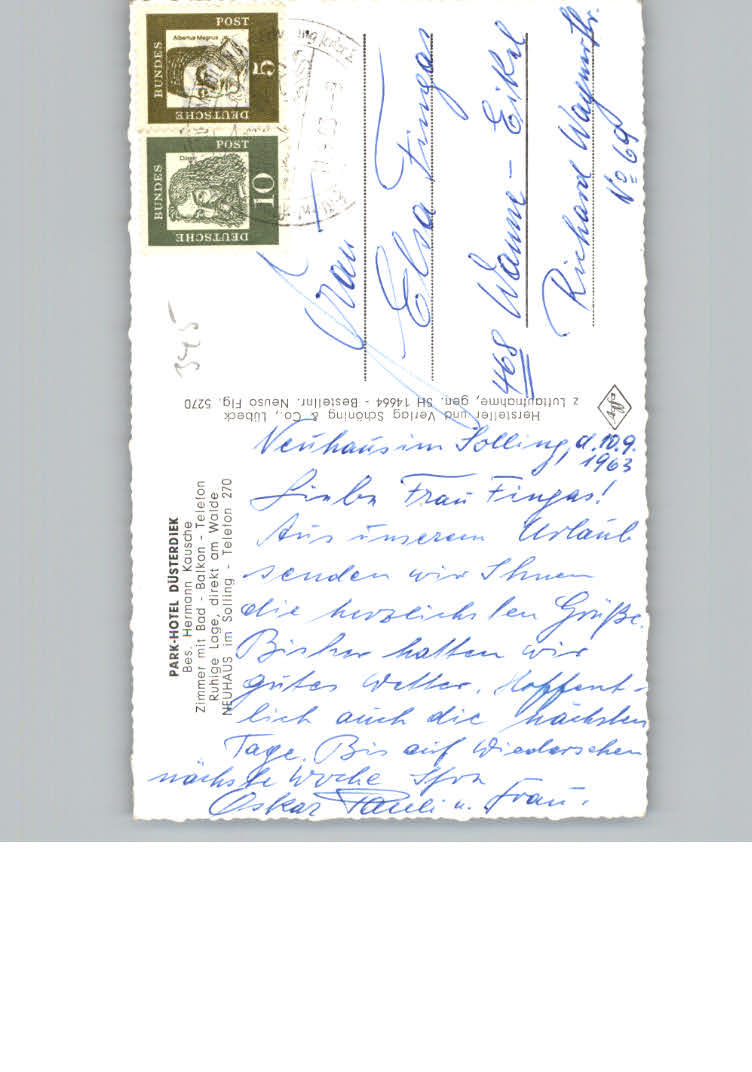 PARK-HOTEL DÜSTERDIEK
Bes. Hermann Kausche
Zimmer mit Bad - Balkon - Telefon
Ruhige Lage, direkt am Walde
NEUHAUS im Solling - Telefon 270
Neuhaus im Solling, d. 10.9.
1963
Liebe Frau Fingas!
Aus unserem Urlaub
senden wir Ihnen
die herzlichsten Grüße.
Bisher hatten wir
gutes Wetter. Hoffent-
lich auch die nächsten
Tage. Bis auf Wiedersehen
nächste Woche Ihr
Oskar Pauli u. Frau.
Hersteller und Verlag Schöning & Co., Lübeck
z Luftaufnahme, gen. SH 14664 - Bestellnr. Neuso Flg. 5270
345
DEUTSCHE BUNDES POST
Albertus Magnus
5
DEUTSCHE BUNDES POST
Dürer
10
Frau
Elsa Fingas
468 Wanne - Eikel
Richard Wagnerstr.
No 69